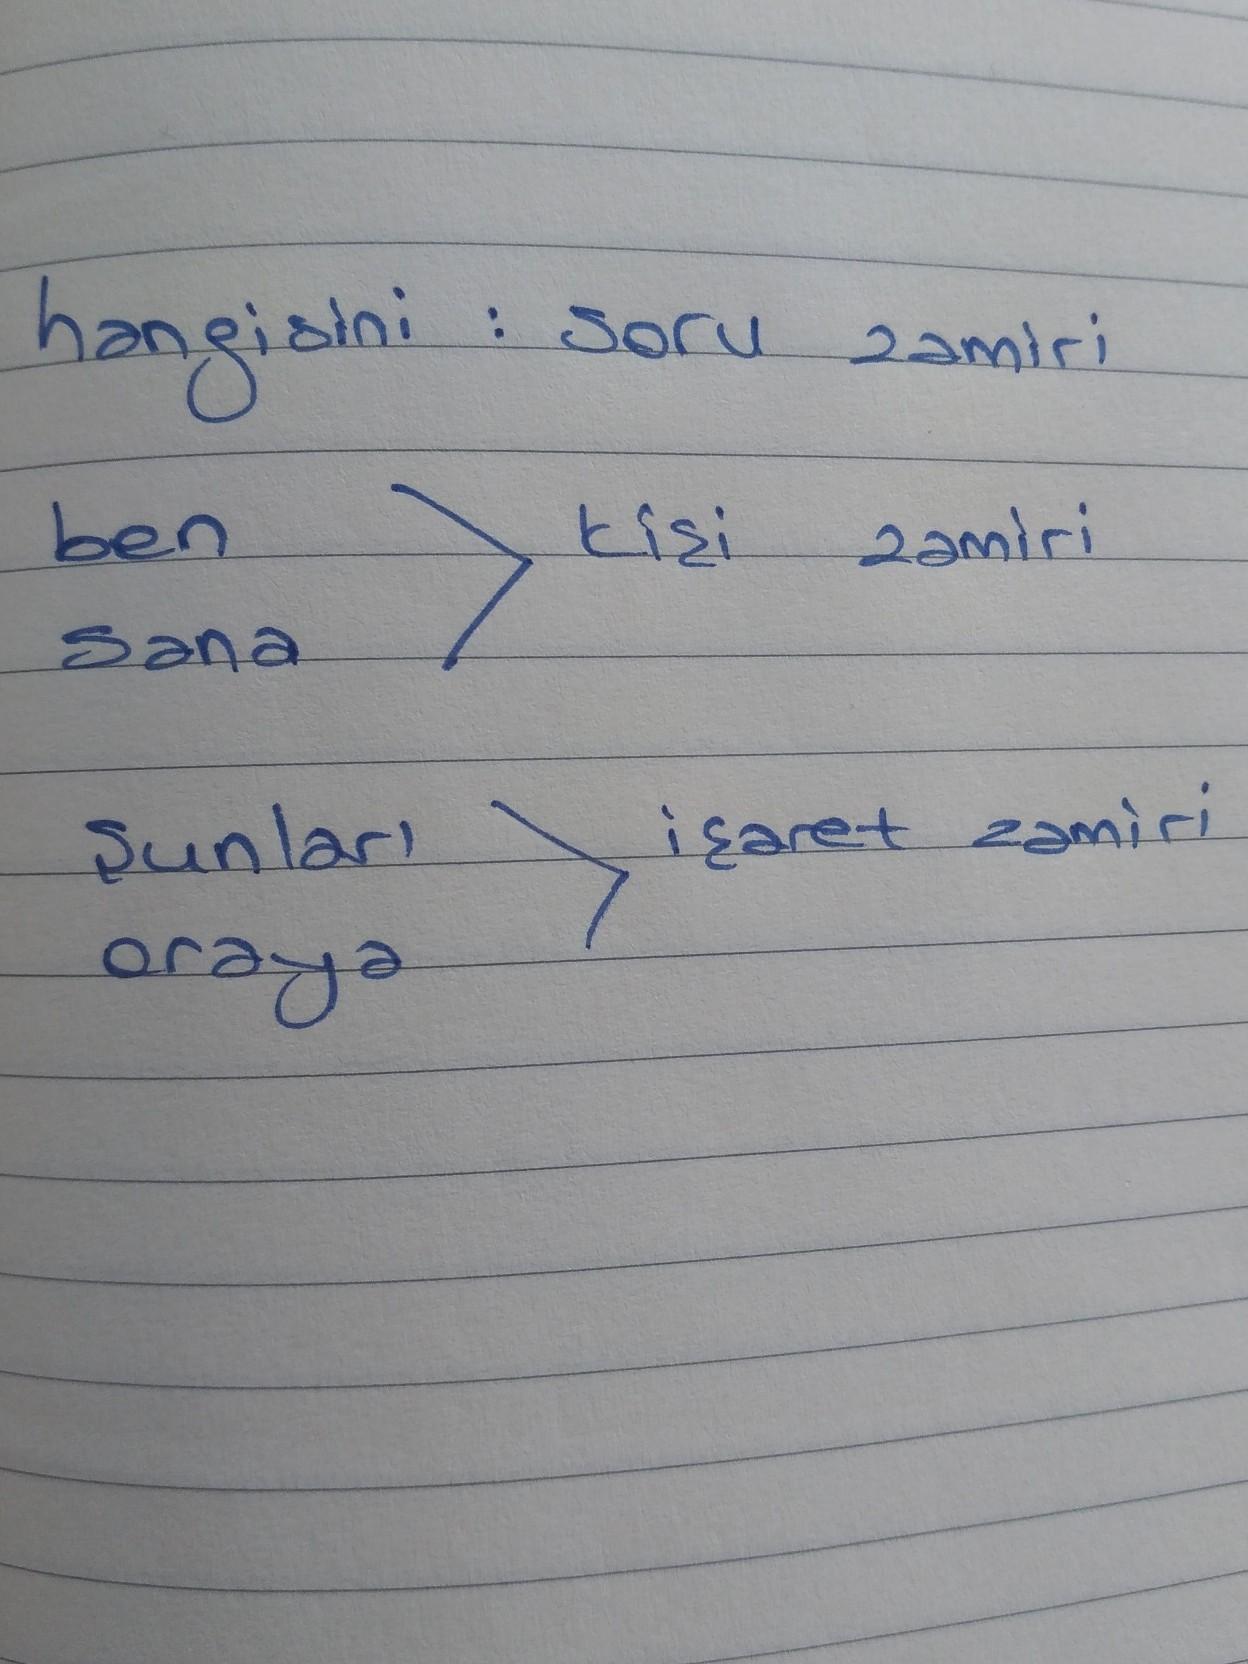 hangisini : soru zamiri
ben
sana
kişi zamiri
şunları
oraya
işaret zamiri